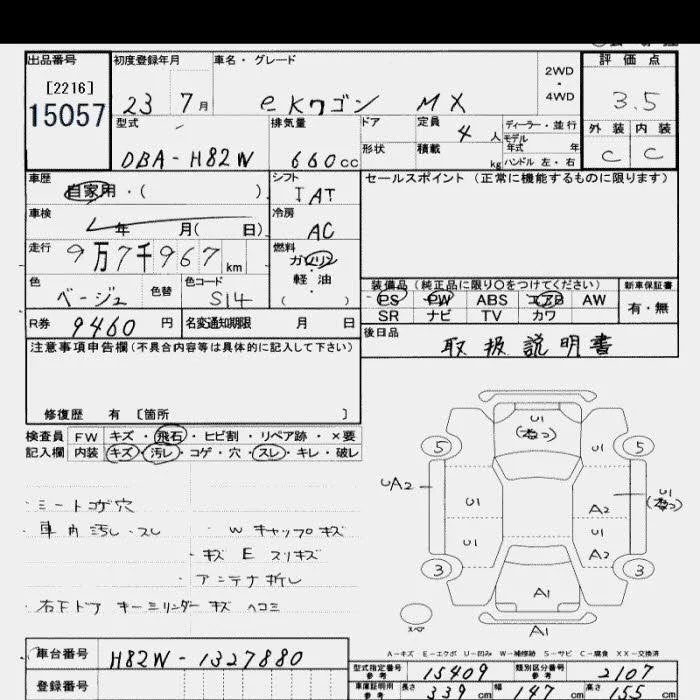 出品番号 初度登録年月 車名・グレード 2WD・4WD 評価点
[2216]
15057 23 7月 eKワゴン MX 3.5
型式 排気量 ドア 定員 4人 ディーラー・並行 外装 内装
形状 積載 kg モデル年式 年 ハンドル 左・右
DBA-H82W 660cc C C
車歴 自家用・( ) シフト IAT セールスポイント (正常に機能するものに限ります)
車検 年 月( 日) 冷房 AC
走行 9万7千967km 燃料 ガソリン・軽油 ( )
色 ベージュ 色替 色コード S14
装備品 (純正品に限り○をつけてください) 新車保証書
PS PW ABS エアB AW 有・無
SR ナビ TV カワ
R券 9460円 名変通知期限 月 日 後日品 取扱説明書
注意事項申告欄(不具合内容等は具体的に記入して下さい)
修復歴 有 〔箇所 〕
検査員 FW キズ・飛石・ヒビ割・リペア跡・×要
記入欄 内装 キズ・汚レ・コゲ・穴・スレ・キレ・破レ
・シートコゲ穴
・車内汚レ・スレ ・Wキャップキズ
・キズ E スリキズ
・アンテナ折レ
・右下ドア キーシリンダー キズ ヘコミ
U1
5 U1 5
UA2 U1 A2 U1
U1 U1 A2
3 3
A1
A1
A-キズ E-エクボ U-凹み W-補修跡 S-サビ C-腐食 XX-交換済
車台番号 H82W-1327880
型式指定番号 参考 15409 類別区分番号 参考 2107
登録番号 車庫証明用 参考 長さ 339cm 幅 147cm 高さ 155cm